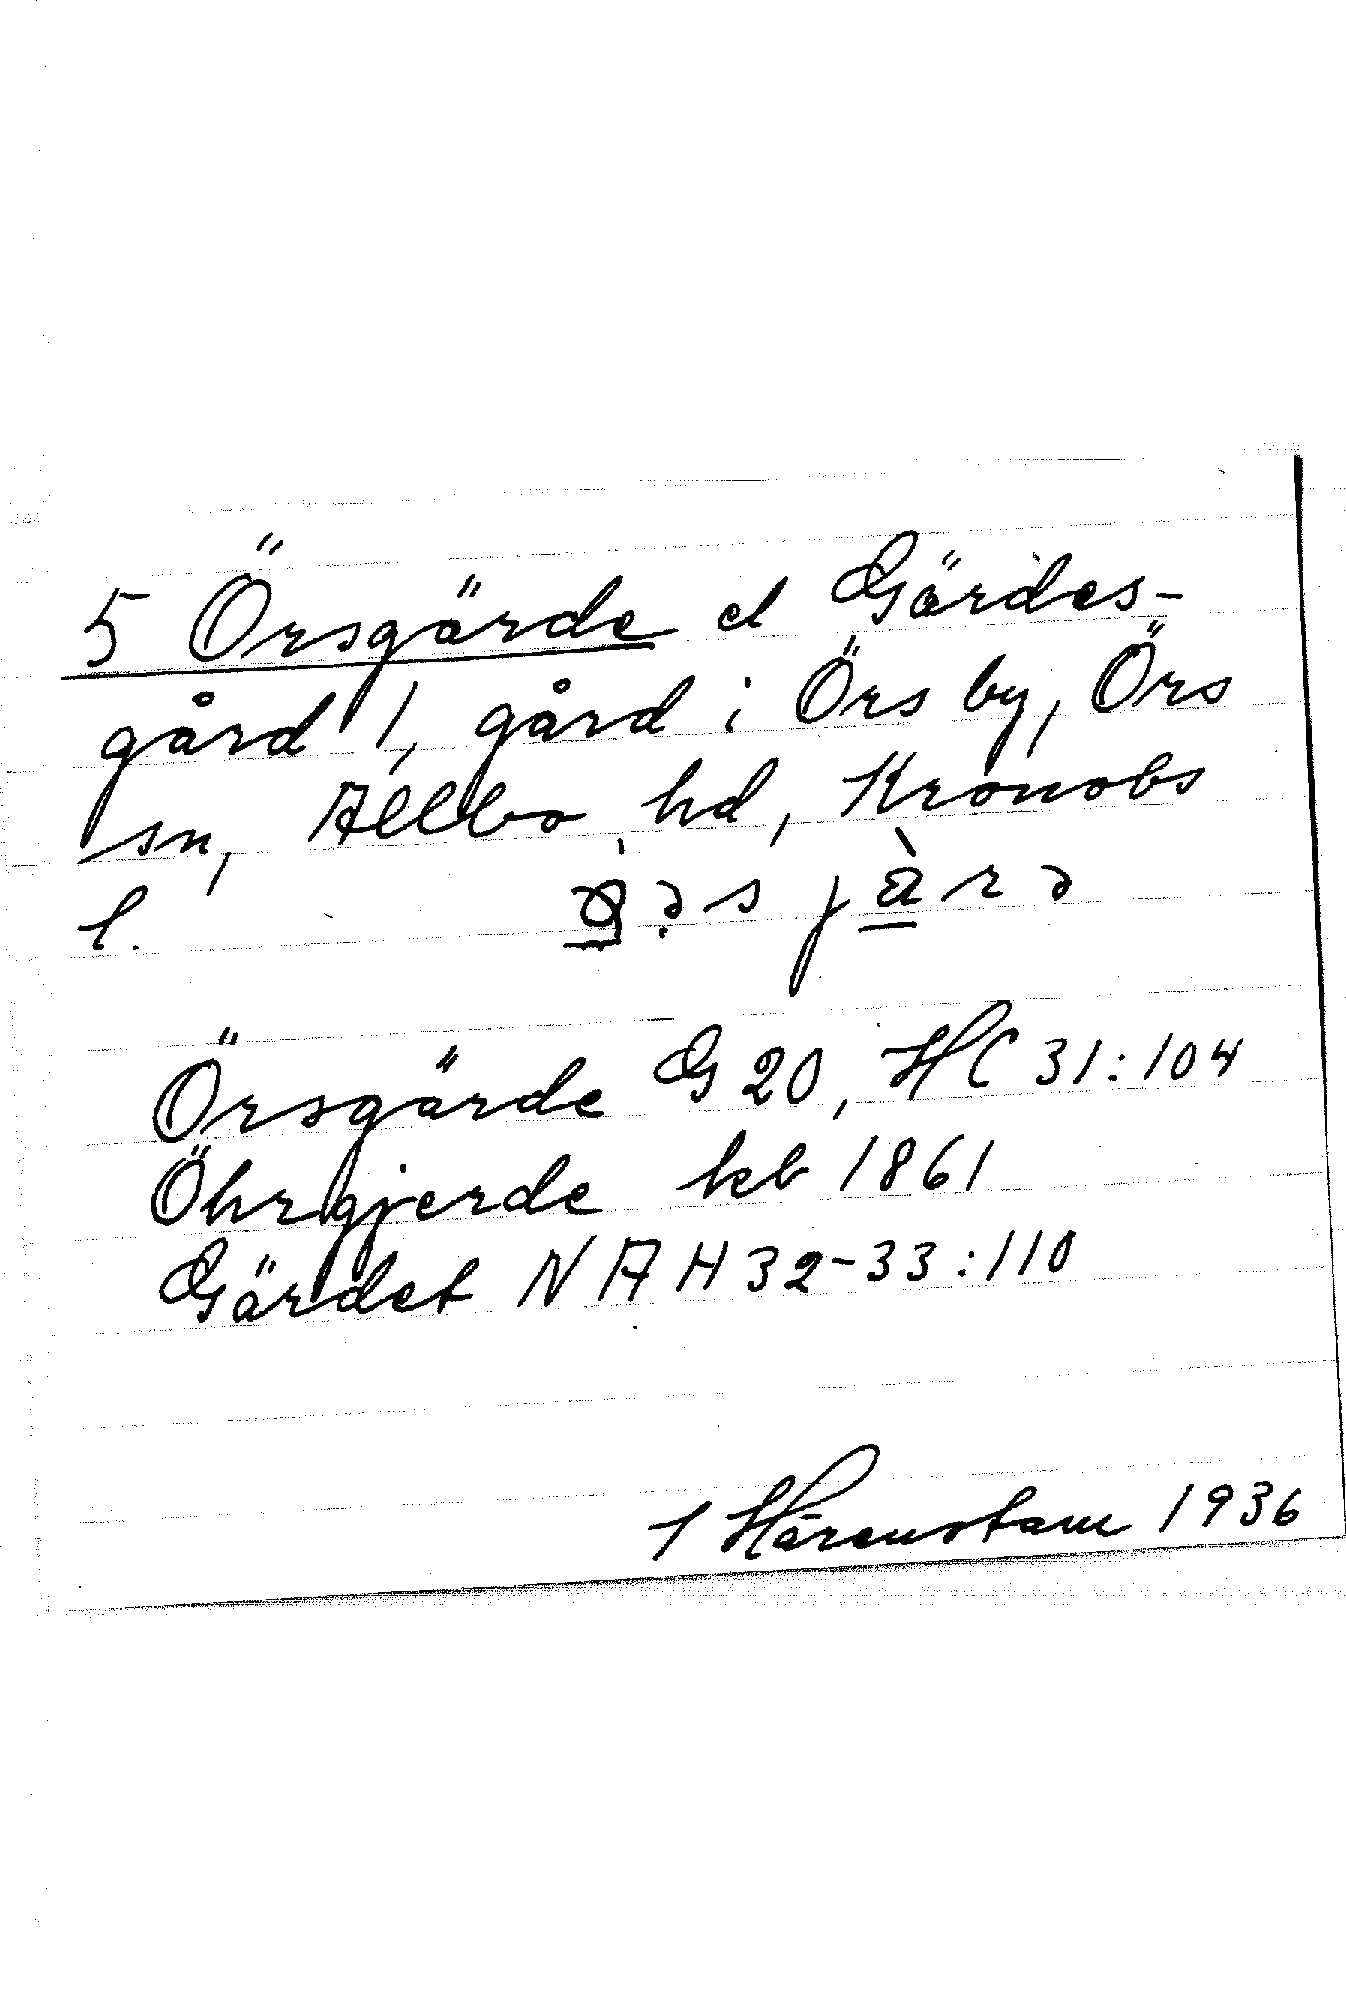 5 Örsgärde el Gärdes-
gård 1, gård i Örs by, Örs
sn, Allbo hd, Kronobs
l.
Örsgärde G 20, HC 31:104
Öhrgjerde kb 1861
Gärdet NAH 32-33:110
I Härenstam 1936